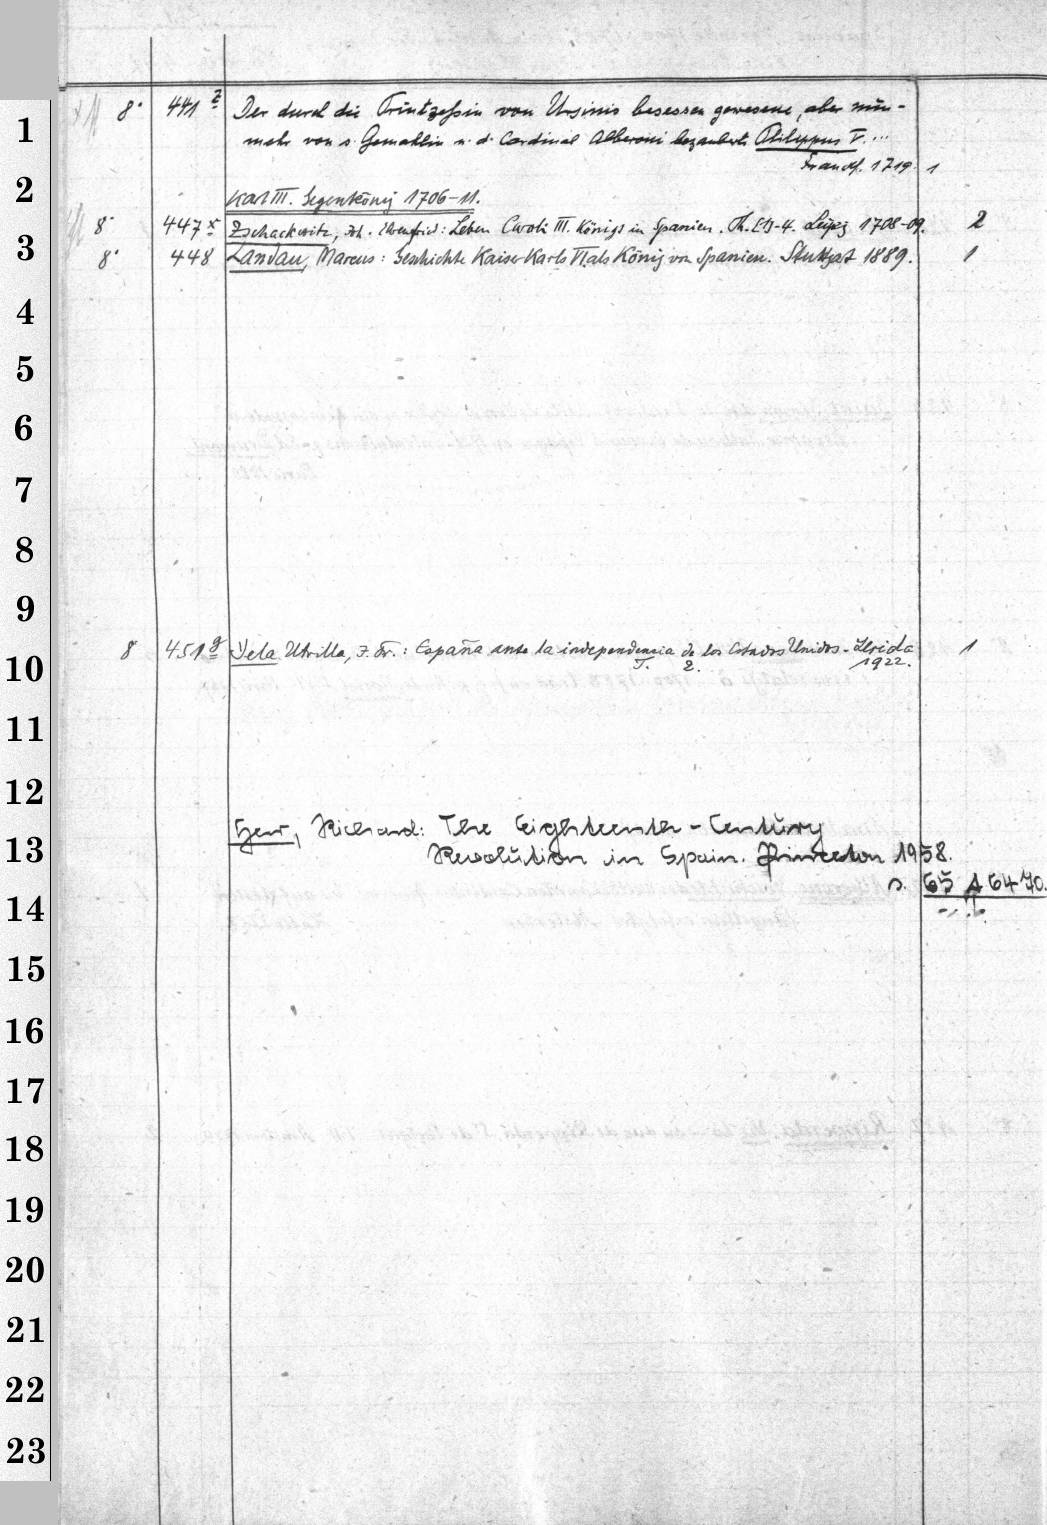 8° 441 z Der durch die Printzessin von Ursinis besessen gewesene, aber nun-
mehr von s. Gemahlin u. d. Cardinal Alberoni bezauberte Philippus V. ...
Franckf. 1719. 1
Karl III. Gegenkönig 1706-11.
8° 447 x Zschackwitz, Joh. Ehrenfried: Leben Caroli III. Königs in Spanien. Th. [1]-4. Leipzig 1708-09. 2
8° 448 Landau, Marcus: Geschichte Kaiser Karls VI. als König von Spanien. Stuttgart 1889. 1
8 451 g Yela Utrilla, J. Fr.: España ante la independencia de los Estados Unidos. Lérida 1
T. 2. 1922.
Herr, Richard: The Eighteenth-Century
Revolution in Spain. Princeton 1958.
s. 65 A 6470.
1
2
3
4
5
6
7
8
9
10
11
12
13
14
15
16
17
18
19
20
21
22
23